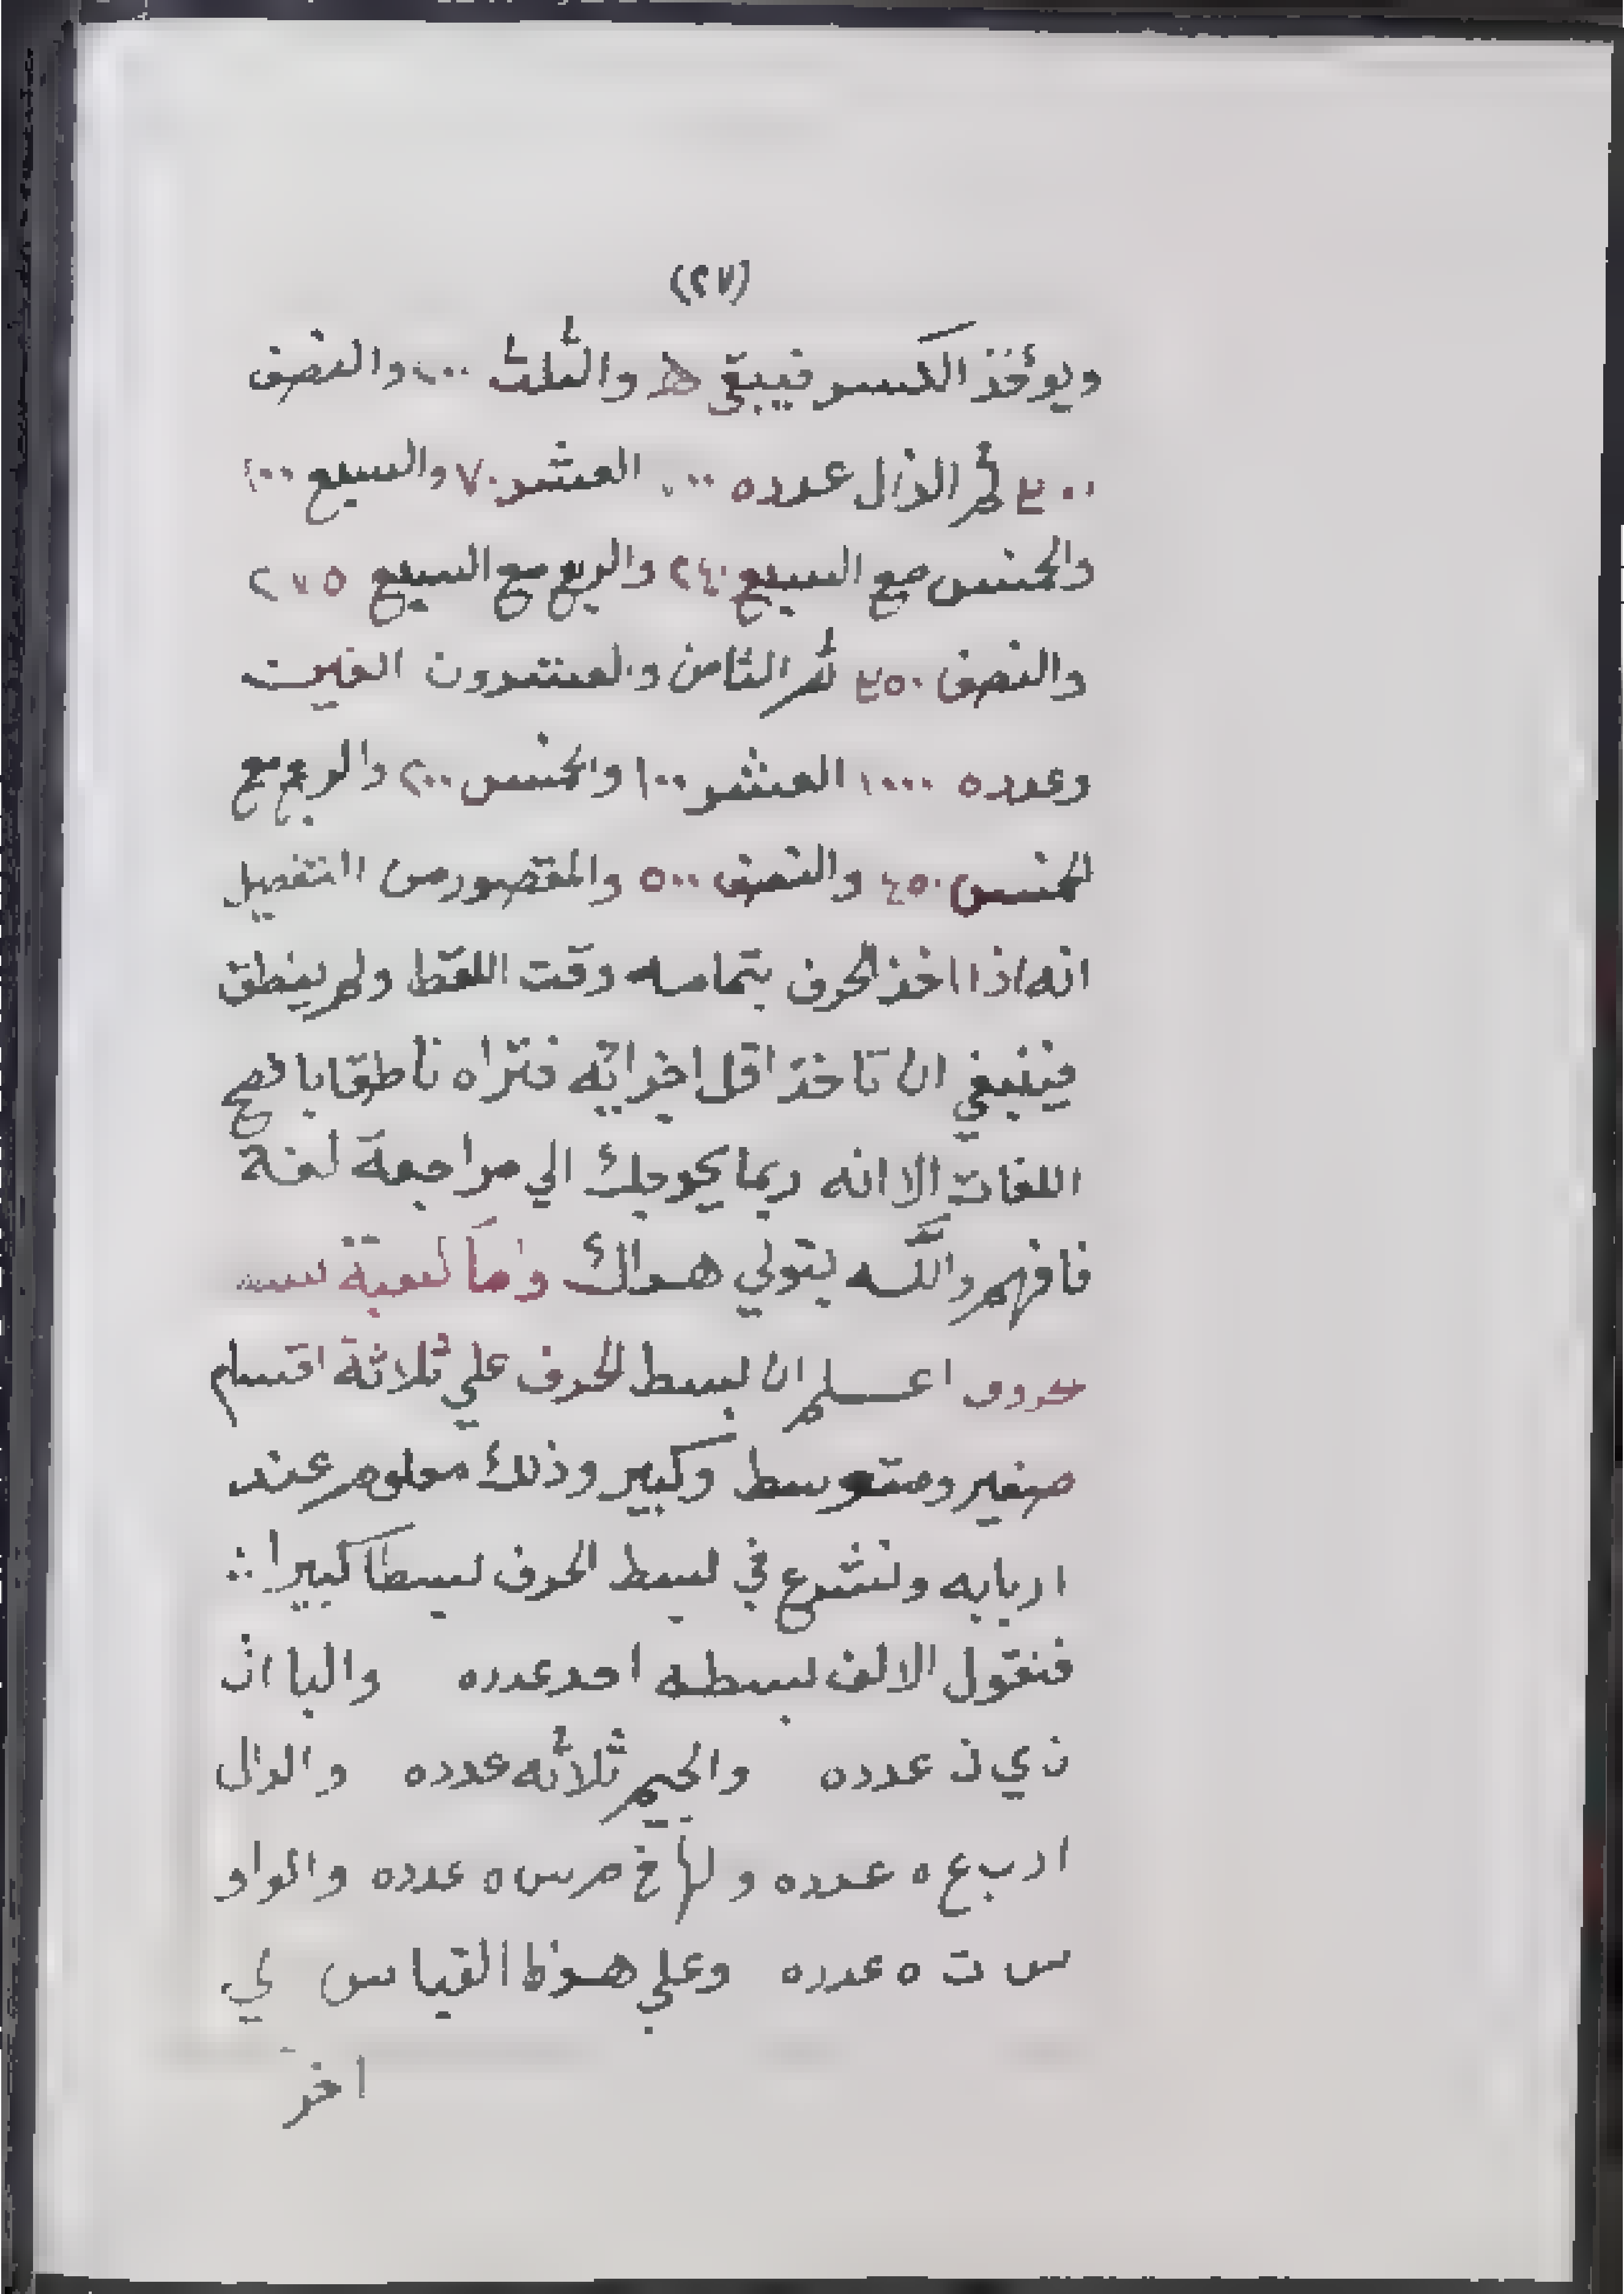 (٢٧)
ويوءخذ الكسر فيبقى ه والثلث ٢٠٠ والنصف
٣٠٠ ثم الذال عدده ٧٠٠ العشر ٧٠ والسبع ١٠٠
والخمس مع السبع ٢٤٠ والربع مع السبع ٢٧٥
والنصف ٣٥٠ ثم الثامن والعشرون الغين
وعدده ١٠٠٠ العشر ١٠٠ والخمس ٢٠٠ والربع مع
لخمس ٤٥٠ والنصف ٥٠٠ والمقصور من التفصيل
انه اذا اخذ الحرف بتمامه وقت اللقط ولم ينطق
فينبغي ان تاخذ اقل اجزايه فتراه ناطقا بافصح
اللغات الا انه ربما يحوجك الي مراجعة لغة
فافهم والله يتولي هداك
حروف اعلم ان لبسط الحرف علي ثلاثة اقسام
صغير ومتوسط وكبير وذلك معلوم عند
اربابه ولنشرع في لبسط الحرف لبسطا كبيرا
فنقول الالف لبسطه احد عدده والبا اث
ن ي ن عدده والجيم ثلاثه عدده والدال
ا ر ب ع ه عدده ولها خ م س ه عدده والواو
س ت ه عدده وعلي هذا القياس لي
اخر